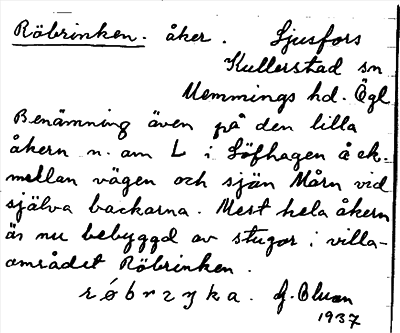 Röbrinken. åker. Ljusfors
Kullerstad sn
Memmings hd. Ögl
Benämning även på den lilla
åkern n. om L i Löfhagen å ek.
mellan vägen och sjön Mårn vid
själva backarna. Mest hela åkern
är nu bebyggd av stugor i villa-
området Röbrinken.
1937